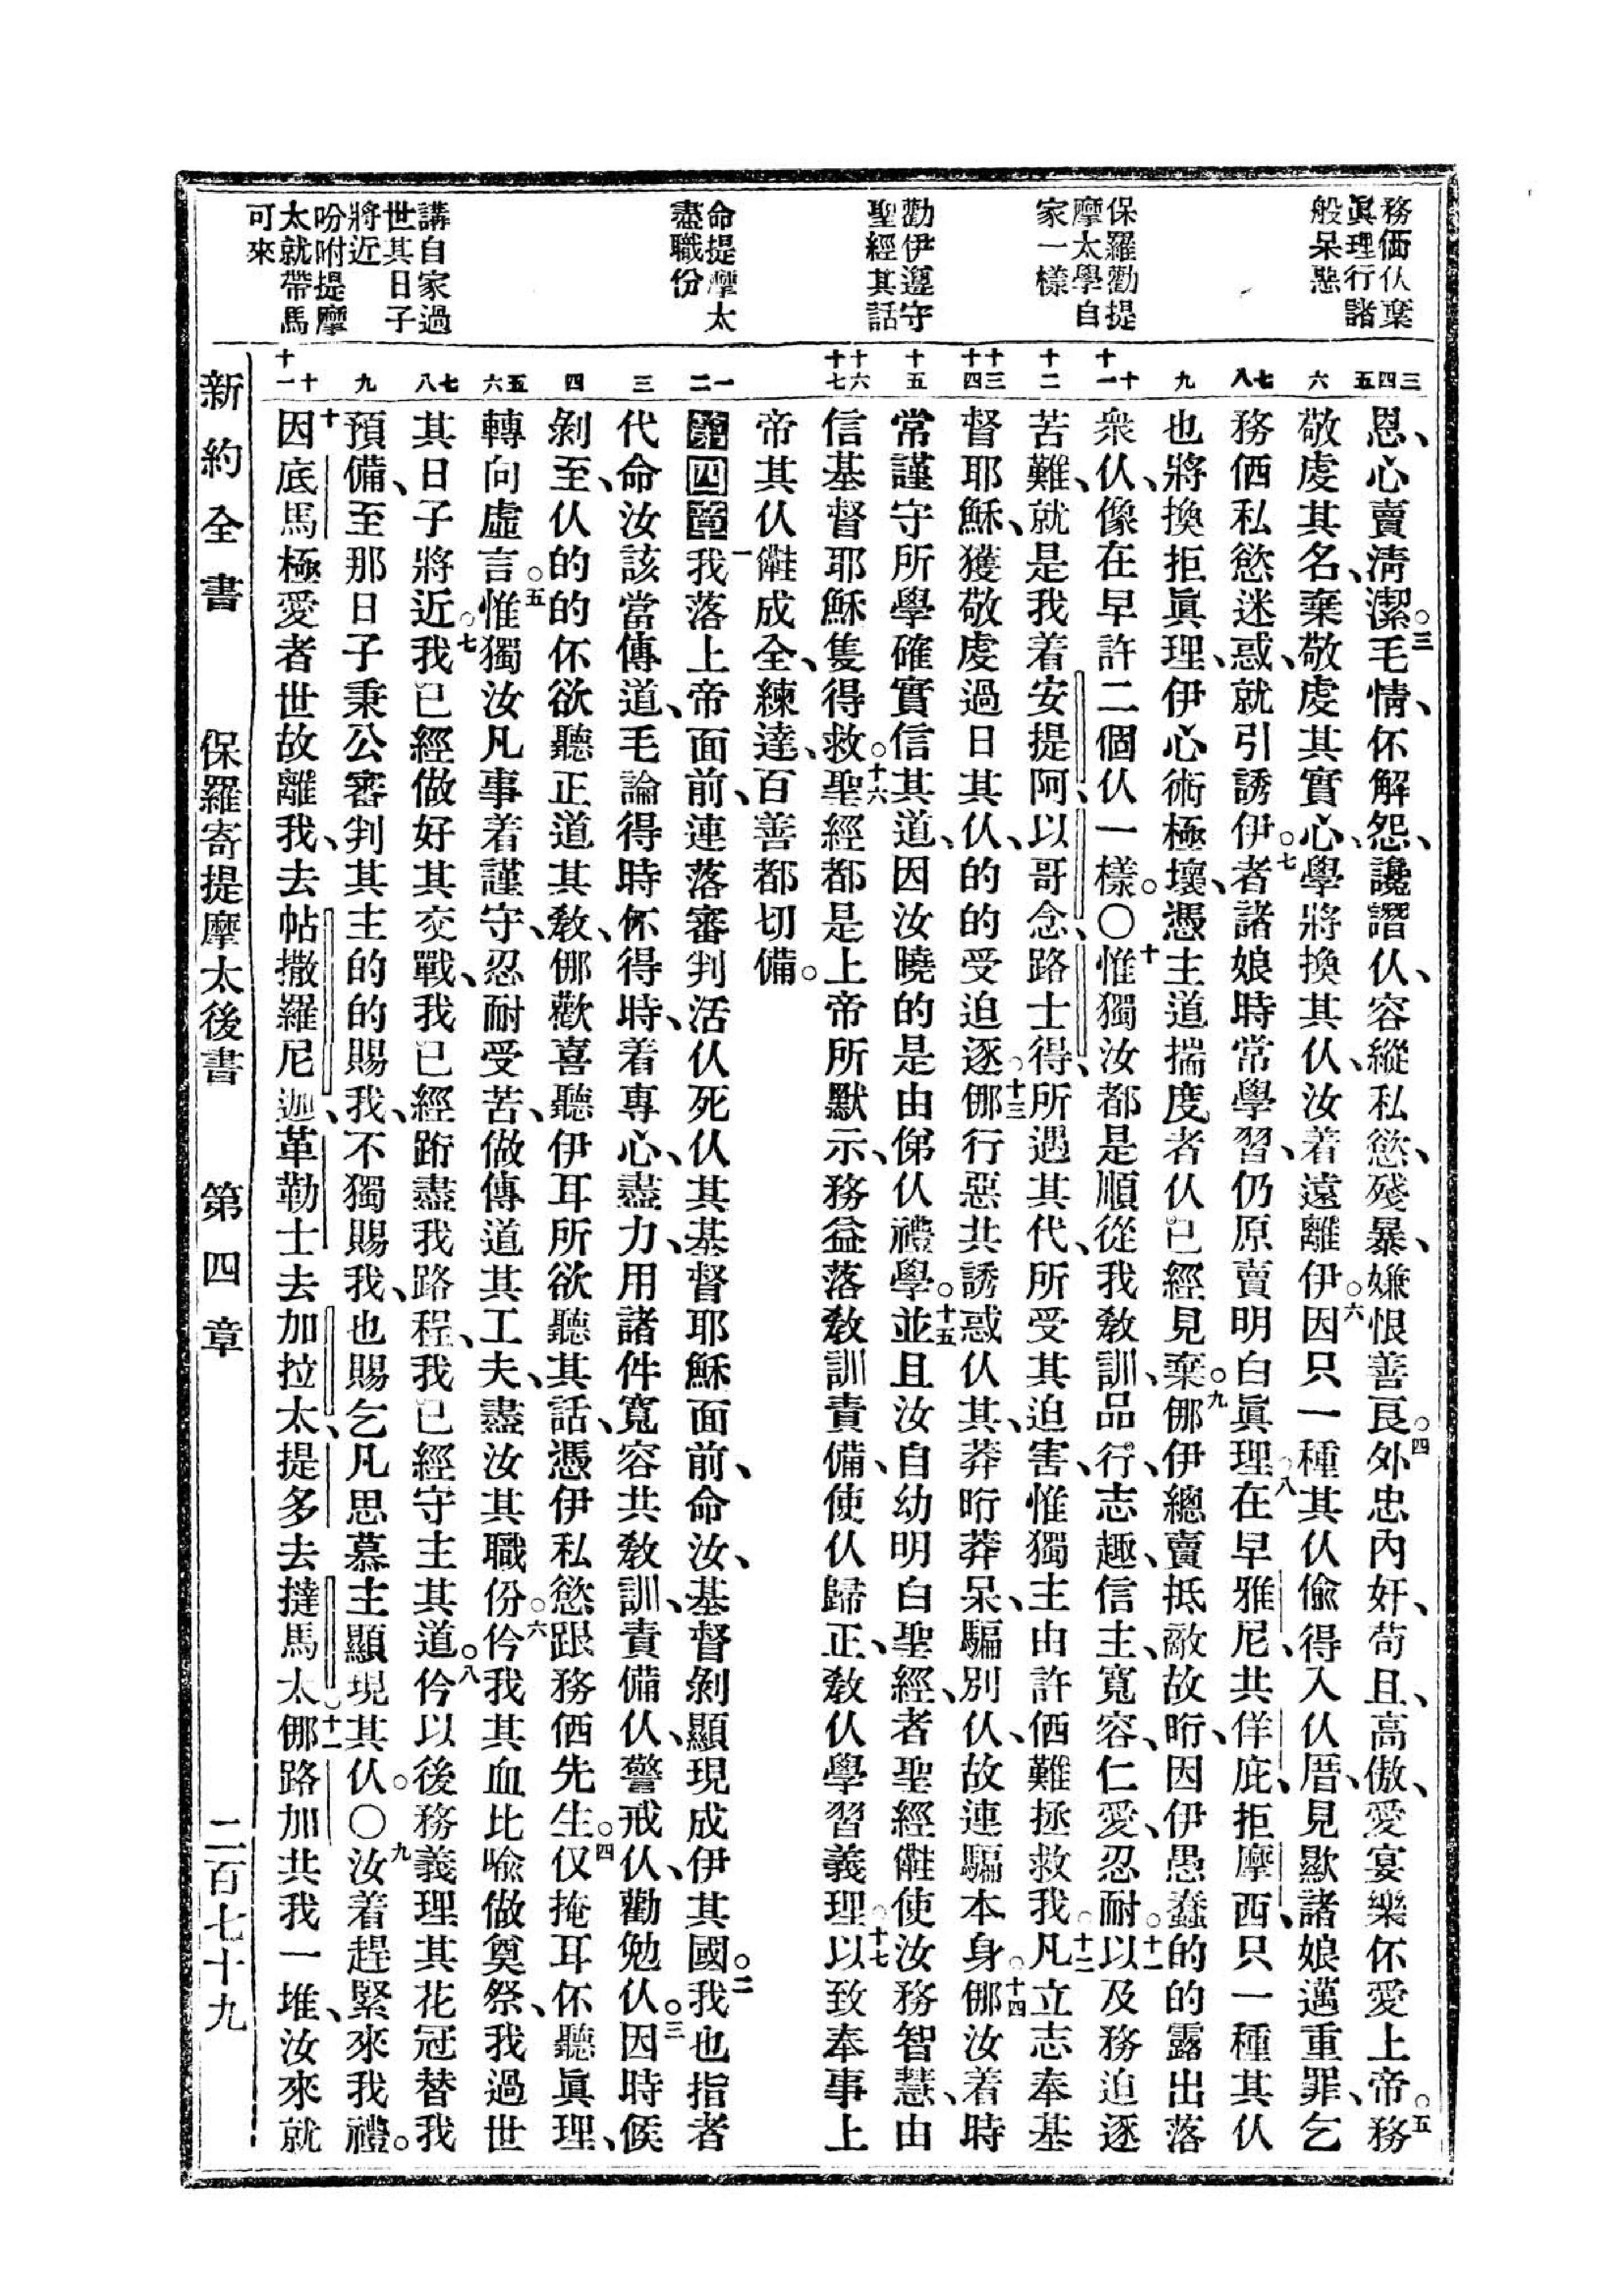 務㑚仈棄
眞理行諸
般呆惡
保羅勸提
摩太學自
家一樣
勸伊遵守
聖經其話
命提摩太
盡職份
講自家過
世其日子
將近
吩咐提摩
太就帶馬
可來
三
四
五
六
七
八
九
十
十一
十二
十三
十四
十五
十六
十七
一
二
三
四
五
六
七
八
九
十
十一
恩、心賣清潔。三毛情、伓解怨、讒譖仈、容縱私慾、殘暴、嫌恨善良。四外忠內奸、苟且、高傲、愛宴樂伓愛上帝。五務
敬虔其名、棄敬虔其實心、學將換其仈、汝着遠離伊。六因只一種其仈偷得入仈厝、見歟諸娘邁重罪、乞
務㑚私慾迷惑、就引誘伊。七者諸娘時常學習、仍原賣明白眞理。八在早雅尼共佯庇、拒摩西、只一種其仈
也將換拒眞理、伊心術極壞、憑主道揣度者仈已經見棄。九㑚伊總賣抵敵故晘、因伊愚蠢的的露出落
衆仈、像在早許二個仈一樣。〇十惟獨汝都是順從我敎訓、品行、志趣、信主、寬容、仁愛、忍耐。十一以及務迫逐
苦難、就是我着安提阿、以哥念、路士得、所遇其代、所受其迫害、惟獨主由許㑚難拯救我。十二凡立志奉基
督耶穌、獲敬虔過日其仈、的的受迫逐。十三㑚行惡共誘惑仈其、莽晘莽呆、騙別仈、故連騙本身。十四㑚汝着時
常謹守所學確實信其道、因汝曉的是由俤仈禮學。十五並且汝自幼明白聖經、者聖經㒰使汝務智慧、由
信基督耶穌隻得救。十六聖經都是上帝所默示、務益落敎訓責備、使仈歸正、敎仈學習義理。十七以致奉事上
帝其仈㒰成全、練達、百善都切備。
第四章 一我落上帝面前、連落審判活仈死仈其基督耶穌面前、命汝、基督剝顯現成伊其國。二我也指者
代命汝該當傳道、毛論得時伓得時、着專心、盡力、用諸件寬容共敎訓、責備仈、警戒仈、勸勉仈。三因時候
剝至、仈的的伓欲聽正道其敎、㑚歡喜聽伊耳所欲聽其話、憑伊私慾跟務㑚先生。四仅掩耳伓聽眞理、
轉向虛言。五惟獨汝凡事着謹守、忍耐受苦、做傳道其工夫、盡汝其職份。六伱我其血比喩做奠祭、我過世
其日子將近。七我已經做好其交戰、我已經跨盡我路程、我已經守主其道。八伱以後務義理其花冠替我
預備、至那日子秉公審判其主的的賜我、不獨賜我、也賜乞凡思慕主顯現其仈。〇九汝着趕緊來我禮。
十因底馬極愛者世故離我、去帖撒羅尼迦、革勒士去加拉太、提多去撻馬太。十一㑚路加共我一堆、汝來就
新約全書 保羅寄提摩太後書 第四章 二百七十九